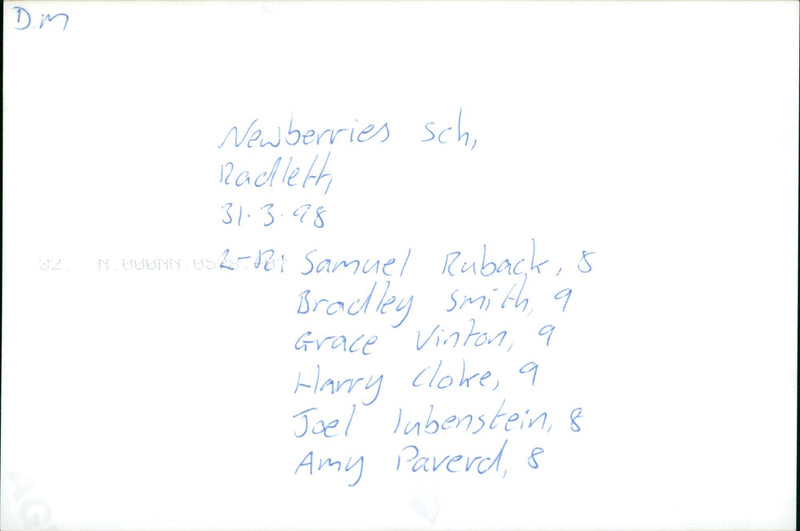 DM
Newberries Sch,
Radlett,
31.3.98
L-R: Samuel Ruback, 8
Bradley Smith, 9
Grace Vinton, 9
Harry Cloke, 9
Joel Lubenstein, 8
Amy Paverd, 8